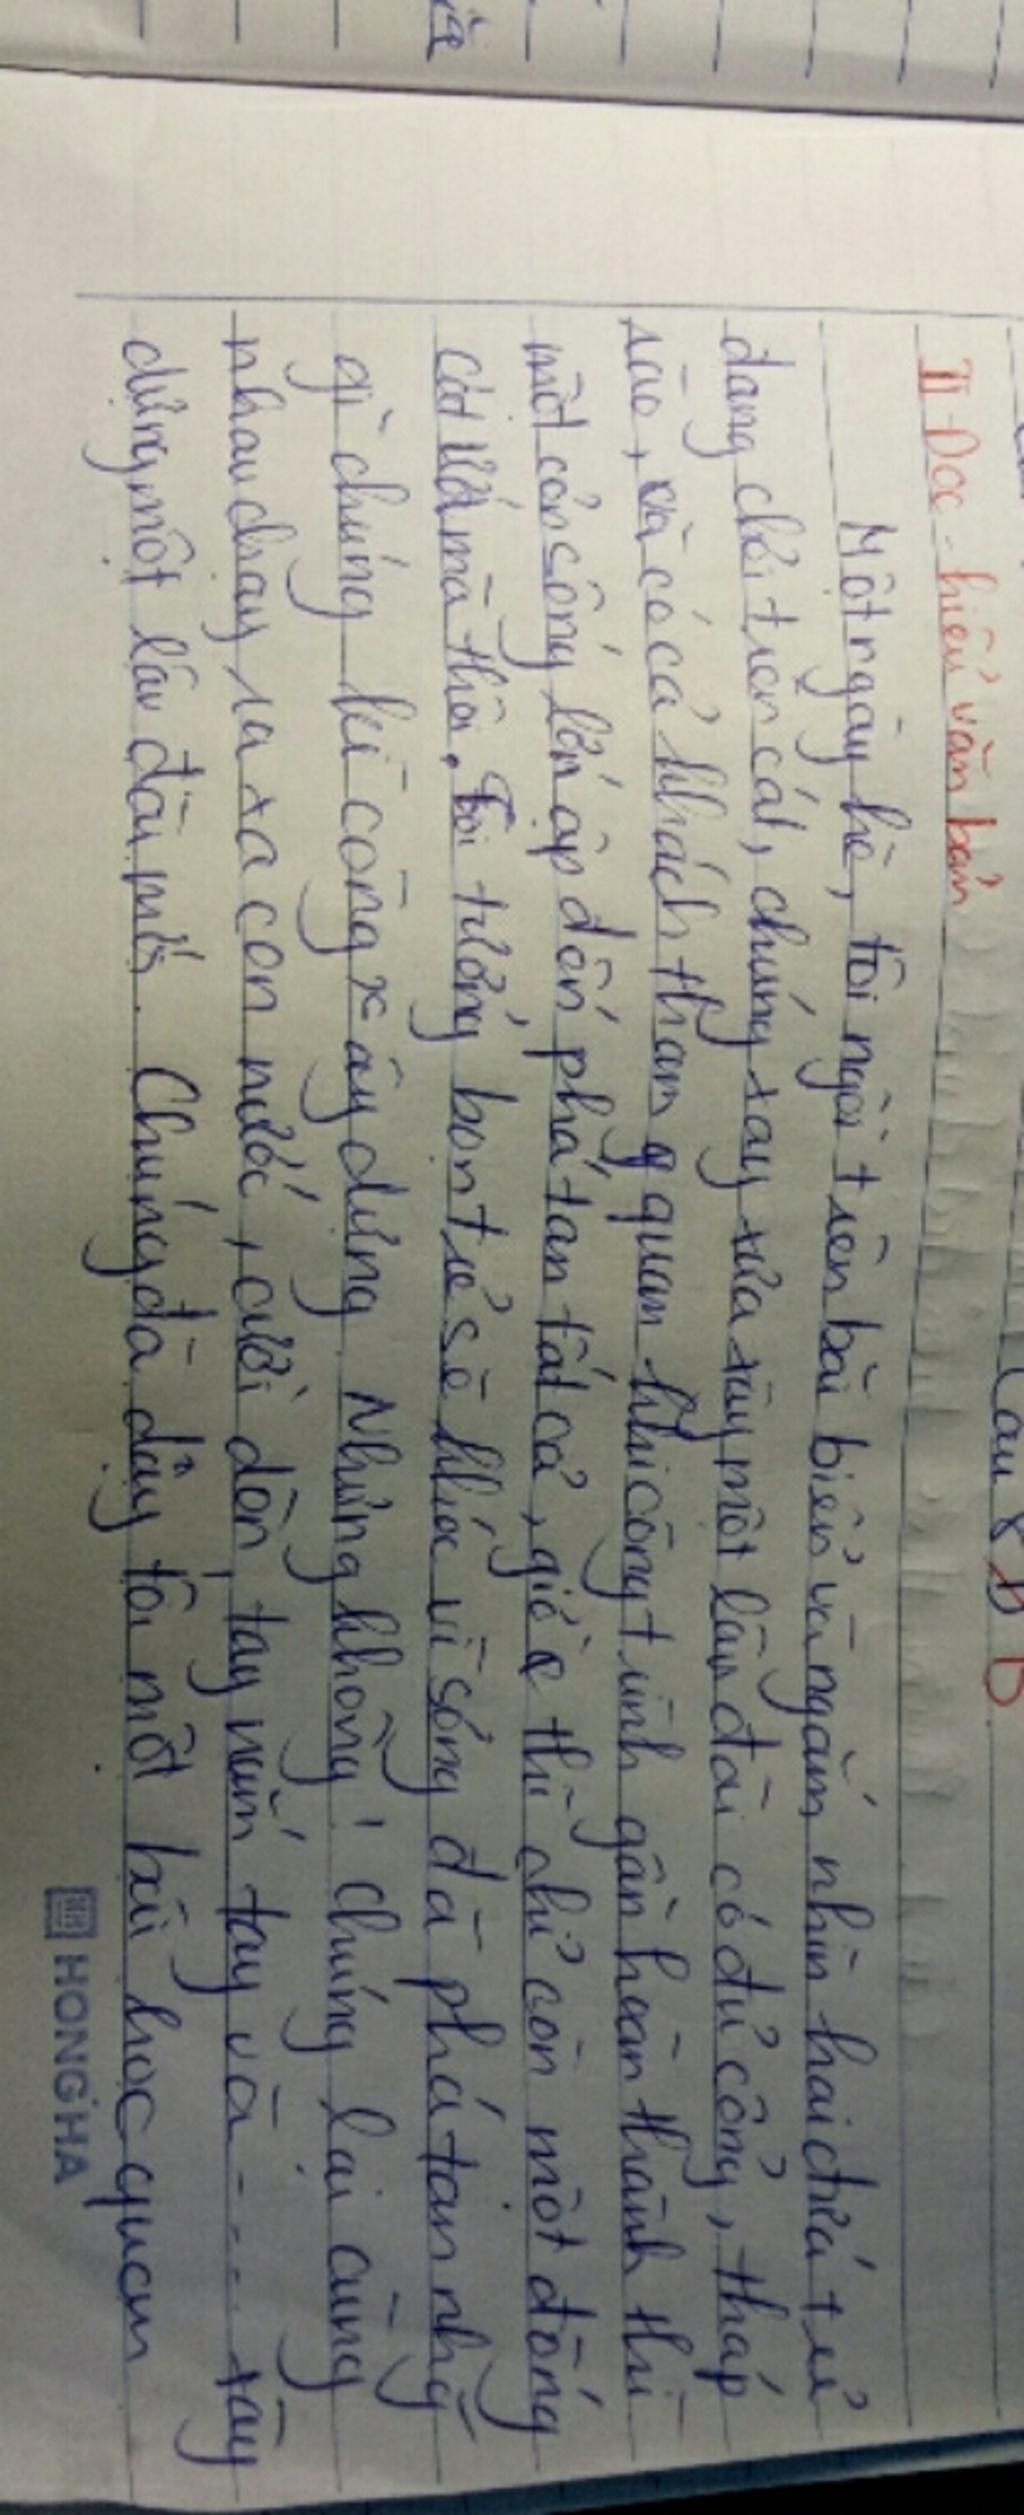 Câu 8 D D
II Đọc - hiểu văn bản
Một ngày hè, tôi ngồi trên bãi biển và ngắm nhìn hai đứa trẻ
đang chơi trên cát, chúng say sưa xây một lâu đài có đủ cổng, tháp
sào, và có cả khách tham quan khi công trình gần hoàn thành thì
một cơn sóng lớn ập đến phá tan tất cả, giờ thì chỉ còn một đống
cát ướt mà thôi. Tôi tưởng bọn trẻ sẽ khóc vì sóng đã phá tan những
gì chúng kì công xây dựng. Nhưng không! chúng lại cùng
nhau chạy ra xa con nước, cười dòn, tay nắm tay và .... xây
dựng một lâu đài mới. Chúng đã dạy tôi một bài học quan
HONG HA